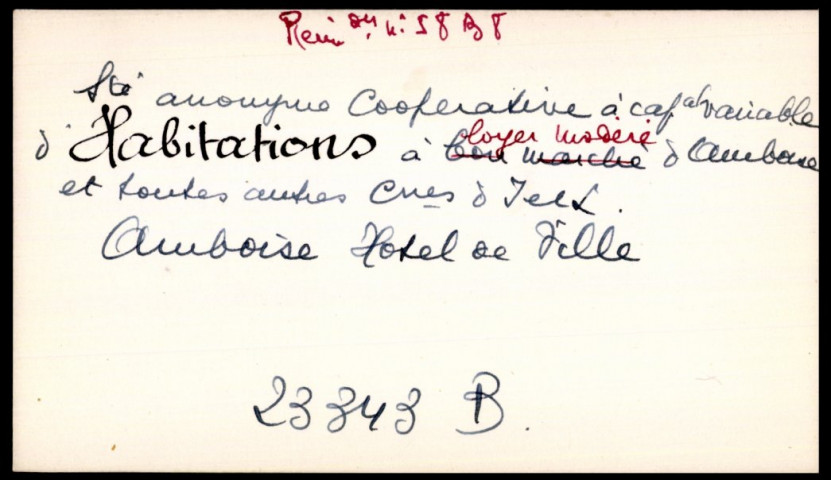 Réim on. n° 58 B 8
Sté anonyme Coopérative à cap al variable
d'Habitations à bon marché loyer modéré d'Amboise
et toutes autres Cnes d'I et L.
Amboise Hotel de Ville
23343 B.